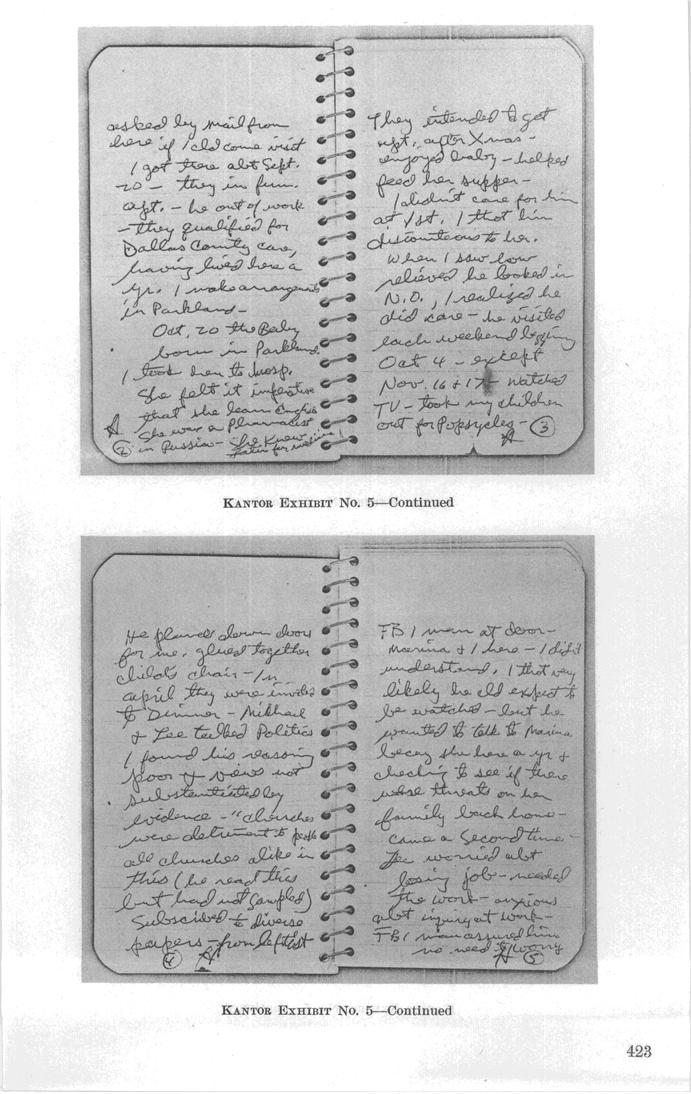 asked by mail from
here if I cld come visit
I got there abt Sept.
20 - they in furn.
apt. - he out of work
- they qualified for
Dallas County care,
having lived here a
yr. I make arrangements
in Parkland -
Oct, 20 the Baby
born in Parkland.
I took her to hosp.
She felt it imperative
that she learn English
She was a Pharmacist
in Russia - She knew
Latin for medicine
A
2
They intended to get
apt. after Xmas -
enjoyed baby - helped
feed her supper -
I didn't care for him
at 1st. I thot him
discourteous to her.
When I saw how
relieved he looked in
N.O., I realized he
did care - he visited
each weekend beging
Oct 4 - except
Nov. 16 & 17 - Watched
TV - took my children
out for Popsycles -
A 3
KANTOR EXHIBIT No. 5—Continued
He planed down doors
for me, glued together
child's chair - In
April they were invited
to Dinner - Mikhael
& Lee talked Politics
I found his reasoning
poor & views not
substantiated by
evidence - "churches
were detriment to people
all churches alike in
this (he read this
but had not sampled)
Subscribed to diverse
papers - from leftist
4 A
FBI man at door -
Marina & I here - I didn't
understand, I thot very
likely he cld expect to
be watched - but he
wanted to talk to Marina
becaz she here a yr &
checking to see if there
were threats on her
family back home -
came a second time -
Lee worried abt
losing job - needed
the work - anxious
abt inquiry at work -
FBI man assured him
no need to worry
A 5
KANTOR EXHIBIT No. 5—Continued
423